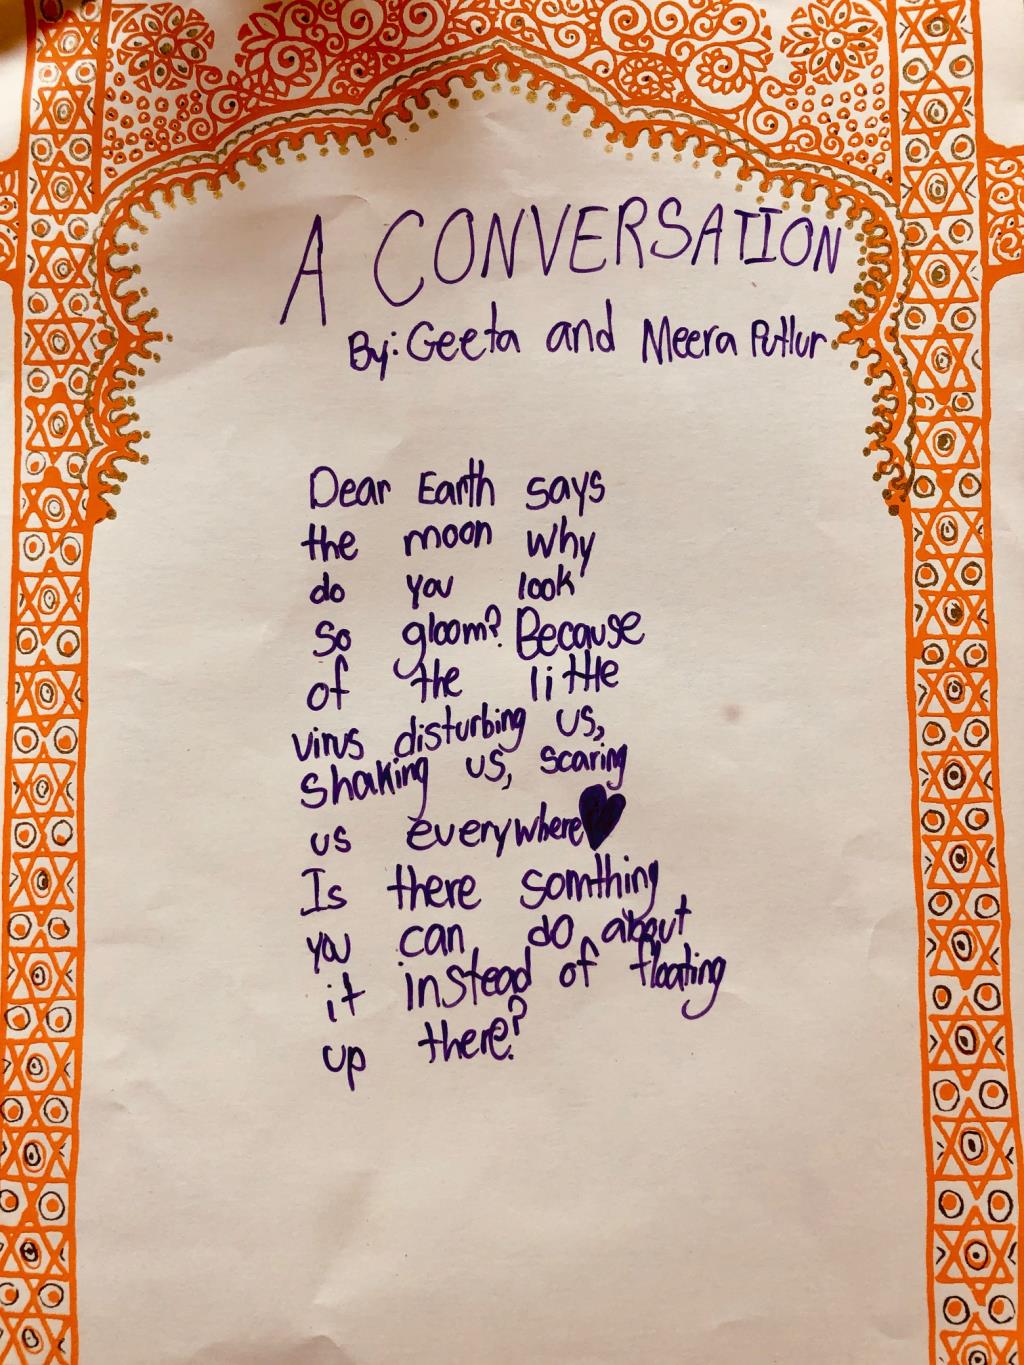 A CONVERSATION
By: Geeta and Meera Putlur
Dear Earth says
the moon why
do you look
so gloom? Because
of the little
virus disturbing us,
shaking us, scaring
us everywhere
Is there somthing
you can do about
it instead of floating
up there?